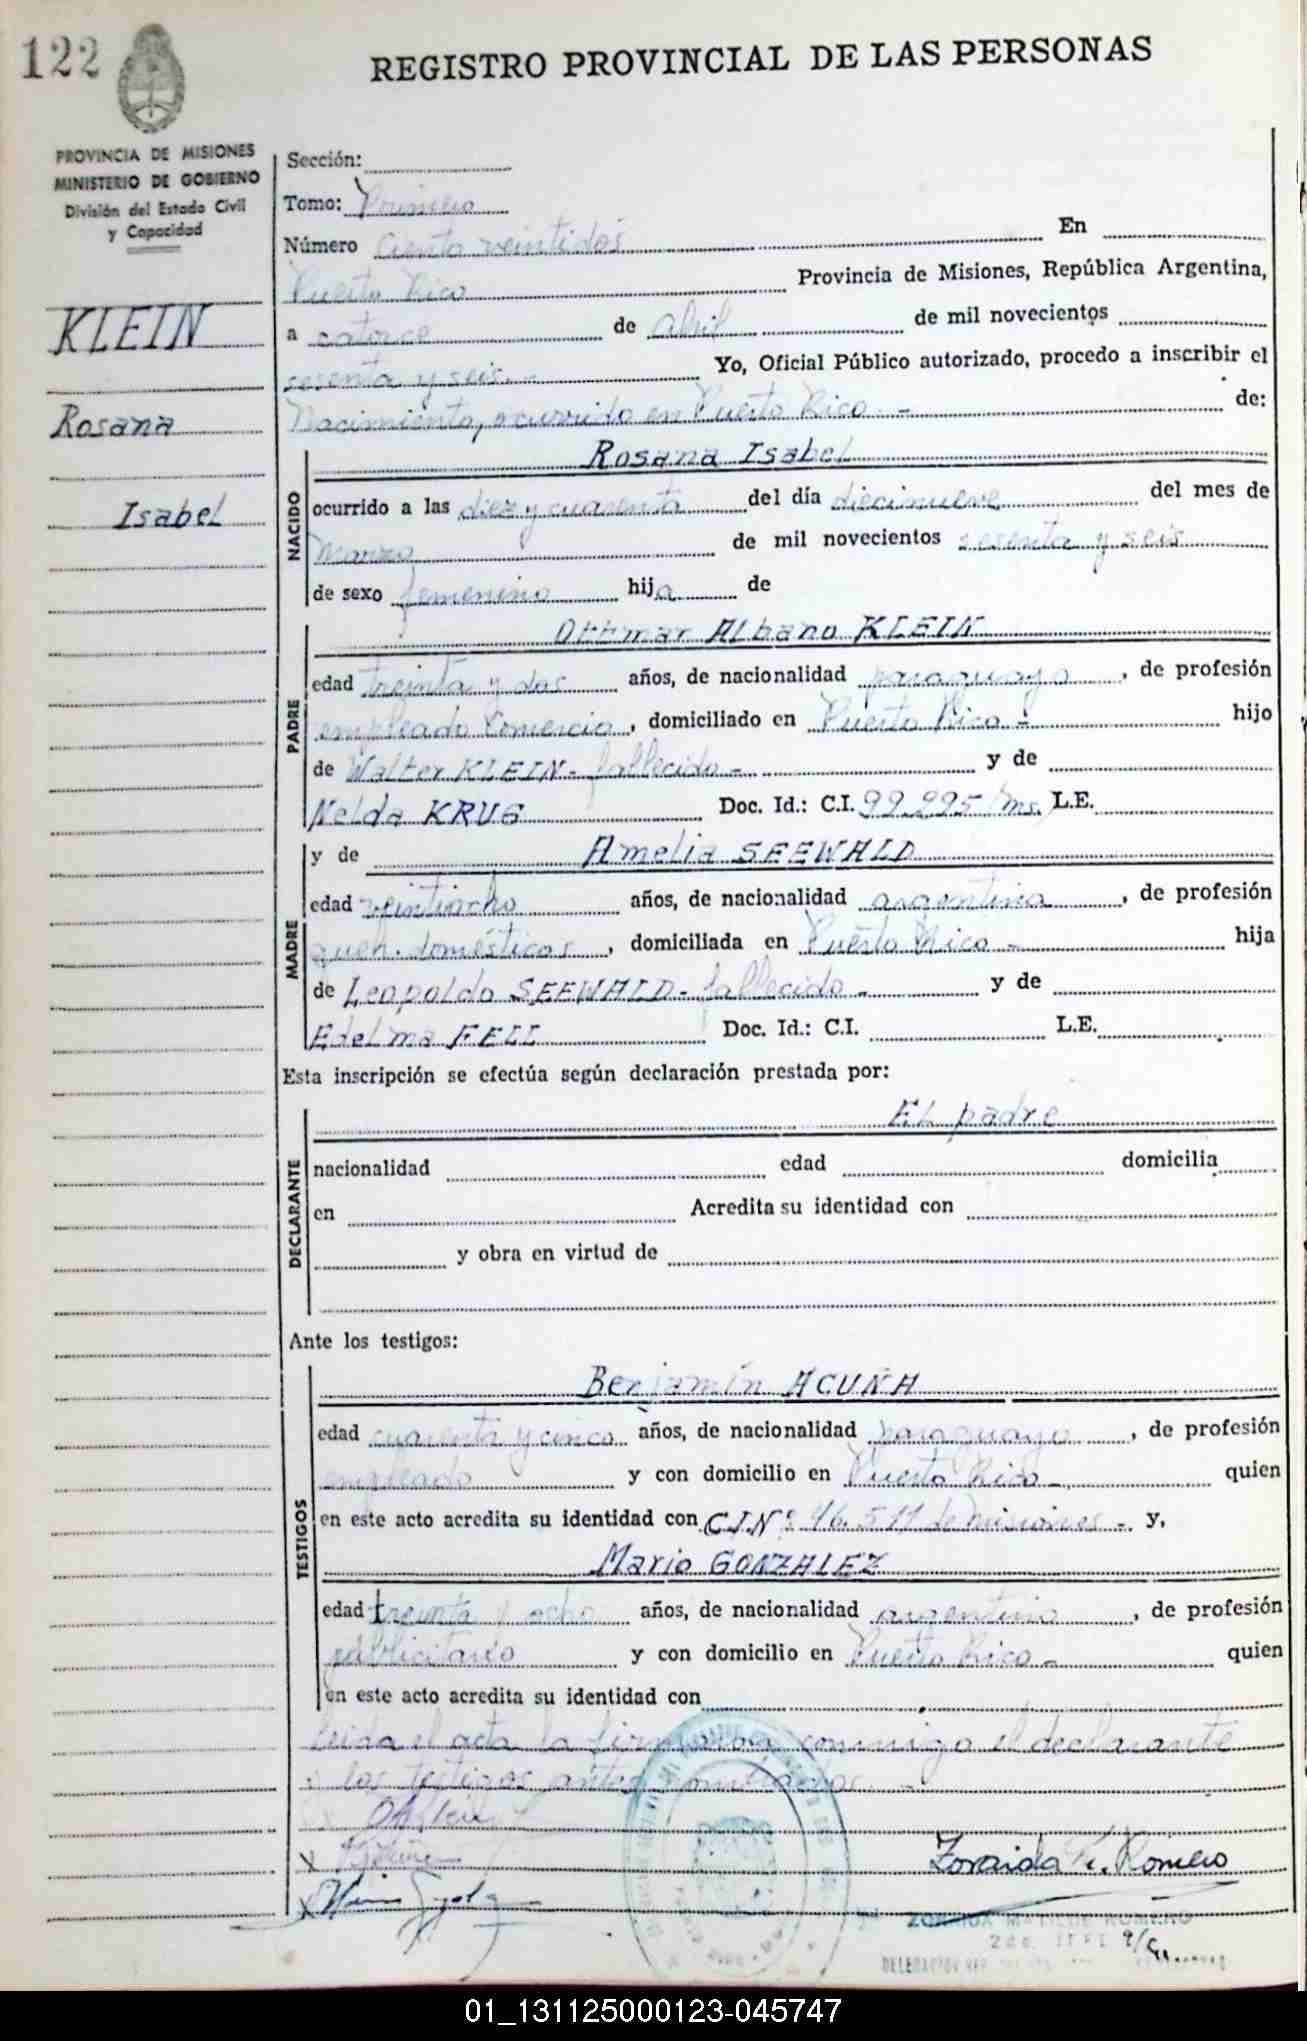 122
REGISTRO PROVINCIAL DE LAS PERSONAS
PROVINCIA DE MISIONES
MINISTERIO DE GOBIERNO
División del Estado Civil
y Capacidad
KLEIN
Rosana
Isabel
Sección:
Tomo: Primero
Número Ciento veintidos En
Puerto Rico Provincia de Misiones, República Argentina,
a catorce de abril de mil novecientos
sesenta y seis.- Yo, Oficial Público autorizado, procedo a inscribir el
Nacimiento, ocurrido en Puerto Rico.- de:
NACIDO
Rosana Isabel
ocurrido a las diez y cuarenta del día diecinueve del mes de
Marzo de mil novecientos sesenta y seis
de sexo femenino hija de
PADRE
Ottmar Albano KLEIN
edad treinta y dos años, de nacionalidad paraguaya, de profesión
empleado Comercio, domiciliado en Puerto Rico.- hijo
de Walter KLEIN- fallecido- y de
Nelda KRUG Doc. Id.: C.I. 99.995/ms. L.E.
MADRE
y de Amelia SEEWALD
edad veintiocho años, de nacionalidad argentina, de profesión
queh. domésticos, domiciliada en Puerto Rico- hija
de Leopoldo SEEWALD- fallecido- y de
Edelma FELL Doc. Id.: C.I. L.E.
Esta inscripción se efectúa según declaración prestada por:
DECLARANTE
El padre
nacionalidad edad domicilia
en Acredita su identidad con
y obra en virtud de
Ante los testigos:
TESTIGOS
Benjamín ACUÑA
edad cuarenta y cinco años, de nacionalidad paraguayo, de profesión
empleado y con domicilio en Puerto Rico- quien
en este acto acredita su identidad con C.I.Nº 46.511 de Misiones- y,
Mario GONZALEZ
edad treinta y ocho años, de nacionalidad argentino, de profesión
publicitario y con domicilio en Puerto Rico- quien
en este acto acredita su identidad con
Leida el acta la firmaron conmigo el declarante
y los testigos antes
Zoraida M. Romero
ZORAIDA MATILDE ROMERO
01_131125000123-045747